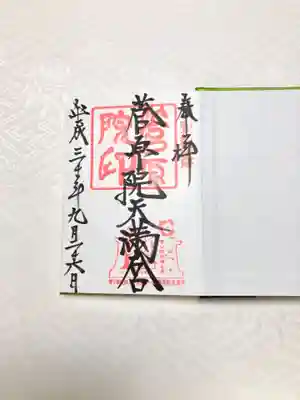 奉拝
菅原院天満宮
平成三十年九月二十六日
菅原院印